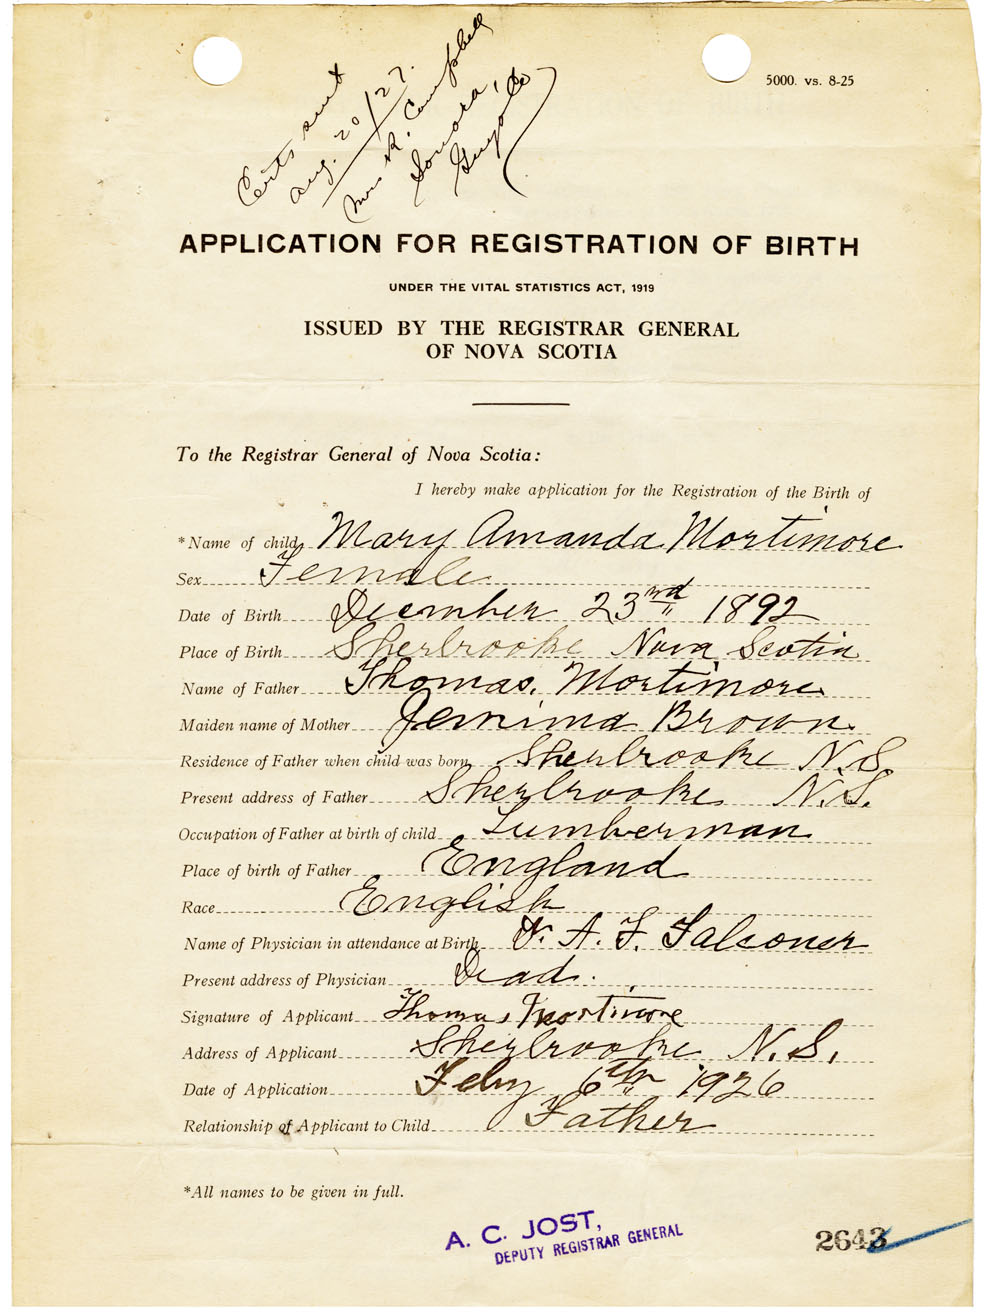 Certs sent
Aug. 20/27.
Mrs R. Campbell
Sonora,
Guys Co
5000. vs. 8-25
APPLICATION FOR REGISTRATION OF BIRTH
UNDER THE VITAL STATISTICS ACT, 1919
ISSUED BY THE REGISTRAR GENERAL
OF NOVA SCOTIA
To the Registrar General of Nova Scotia:
I hereby make application for the Registration of the Birth of
*Name of child Mary Amanda Mortimore
Sex Female
Date of Birth December 23rd 1892
Place of Birth Sherbrooke Nova Scotia
Name of Father Thomas. Mortimore
Maiden name of Mother Jemima Brown
Residence of Father when child was born Sherbrooke N.S.
Present address of Father Sherbrooke N.S.
Occupation of Father at birth of child Lumberman
Place of birth of Father England
Race English
Name of Physician in attendance at Birth A. F. Falconer
Present address of Physician Dead.
Signature of Applicant Thomas Mortimore
Address of Applicant Sherbrooke N.S.
Date of Application Feby 6th 1926
Relationship of Applicant to Child Father
*All names to be given in full.
A. C. JOST,
DEPUTY REGISTRAR GENERAL
2643